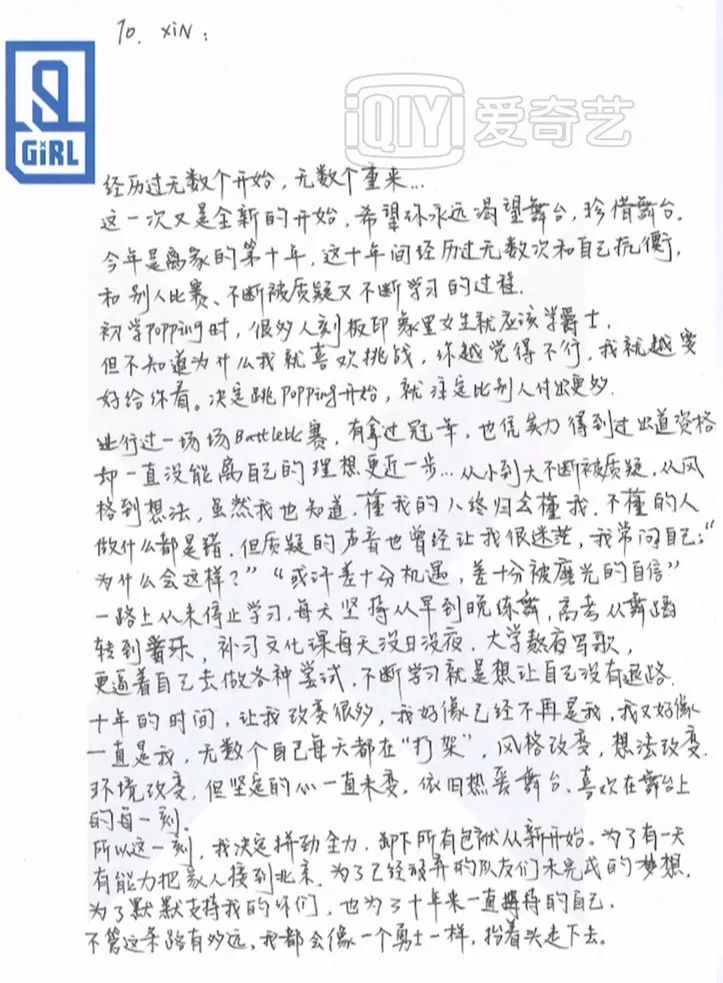 To. XiN:
iQIYI 爱奇艺
GiRL
经历过无数个开始，无数个重来...
这一次又是全新的开始，希望你永远渴望舞台，珍惜舞台.
今年是离家的第十年，这十年间经历过无数次和自己抗衡，
和别人比赛、不断被质疑又不断学习的过程.
初学Popping时，很多人刻板印象里女生就应该学爵士.
但不知道为什么我就喜欢挑战，你越觉得不行，我就越要
好给你看。决定跳Popping开始，就注定比别人付出更多.
进行过一场场Battle比赛，有拿过冠军，也凭实力得到过出道资格
却一直没能离自己的理想更近一步...从小到大不断被质疑，从风
格到想法，虽然我也知道，懂我的人终归会懂我，不懂的人
做什么都是猪，但质疑的声音也曾经让我很迷茫，我常问自己："
为什么会这样？" "或许差十分机遇，差十分被磨光的自信"
一路上从未停止学习，每天坚持从早到晚练舞，高考从舞蹈
转到音乐，补习文化课每天没日没夜，大学熬夜写歌，
更逼着自己去做各种尝试，不断学习就是想让自己没有退路.
十年的时间，让我改变很多，我好像已经不再是我，我又好像
一直是我，无数个自己每天都在"打架"，风格改变，想法改变.
环境改变，但坚定的心一直未变，依旧热爱舞台、喜欢在舞台上
的每一刻.
所以这一刻，我决定拼劲全力，卸下所有包袱从新开始。为了有一天
有能力把家人接到北京，为了已经放弃的队友们未完成的梦想，
为了默默支持我的你们，也为了十年来一直坚持的自己.
不管这条路有多远，我都会像一个勇士一样，抬着头走下去。